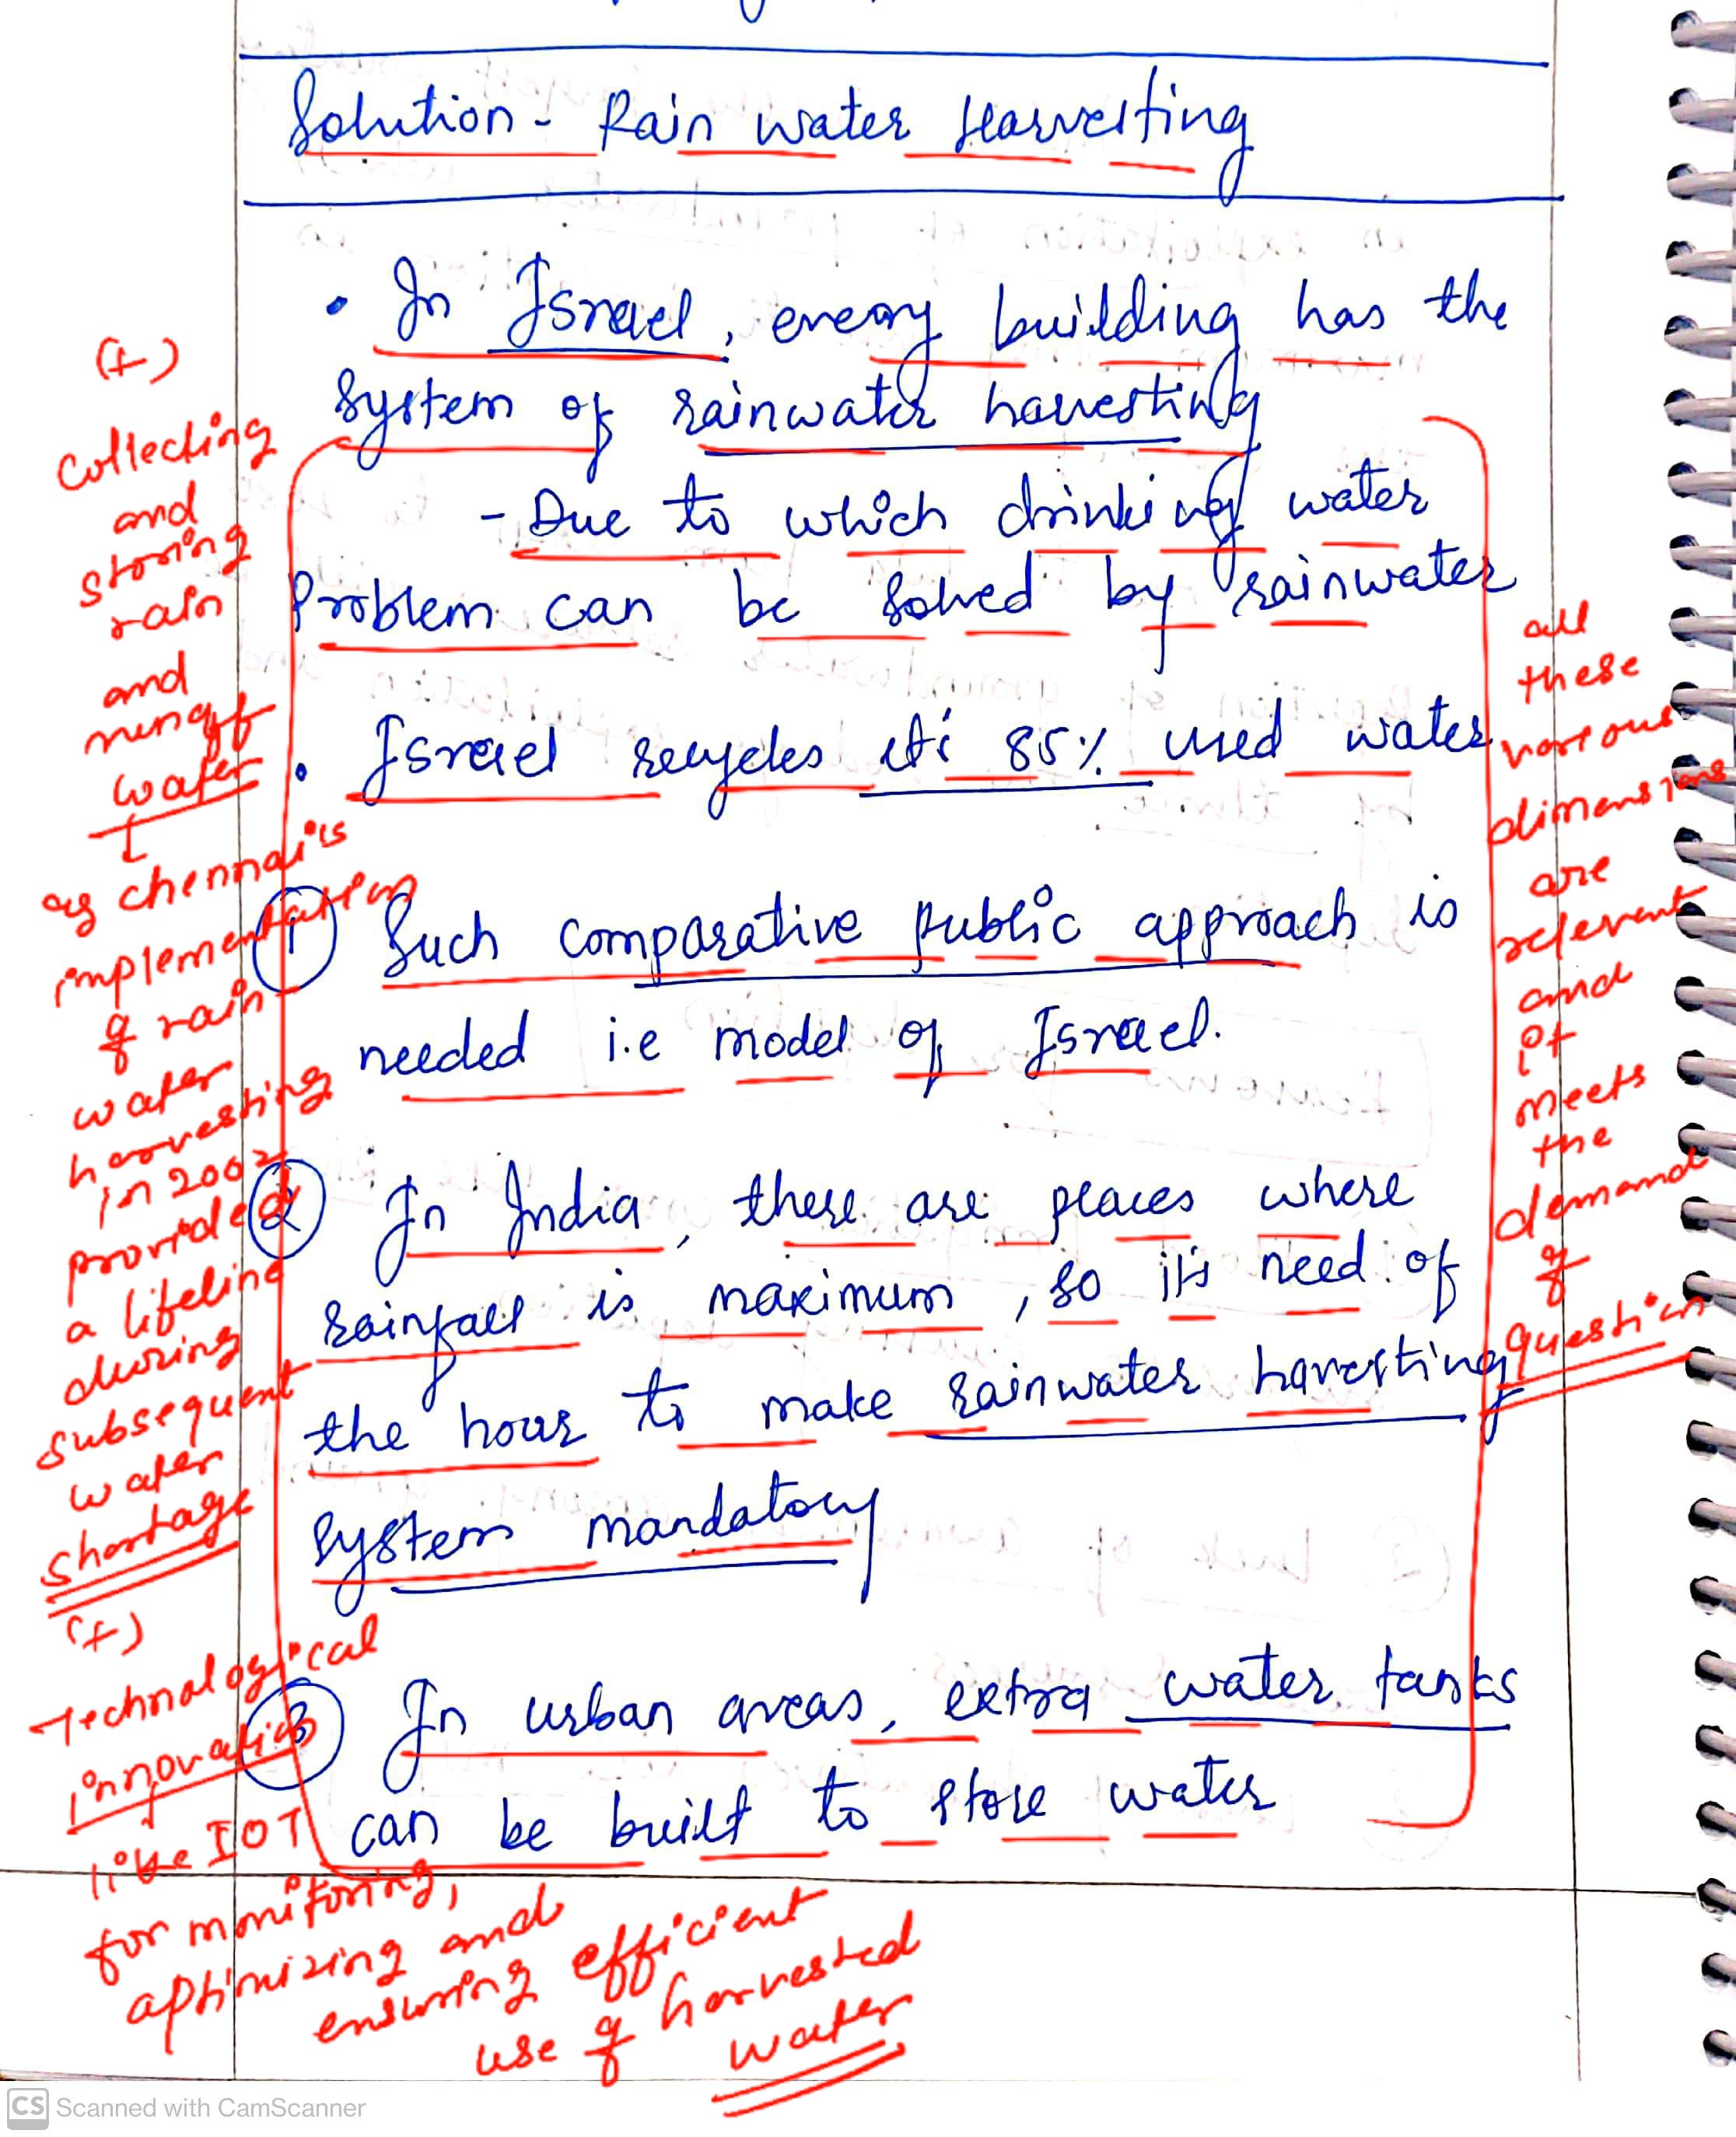 Solution - Rain water Harvesting
• In Israel, every building has the
system of rainwater harvesting
- Due to which drinking water
Problem can be solved by rainwater
• Israel recycles its 85% used water
① Such comparative public approach is
needed i.e model of Israel.
② In India, there are places where
rainfall is maximum, so it's need of
the hour to make rainwater harvesting
system mandatory
③ In urban areas, extra water tanks
can be built to store water
(+)
Collecting
and
storing
rain
and
runoff
water
eg chennai's
implementation
of rain
water
harvesting
in 2002
provided
a lifeline
during
subsequent
water
shortage
(+)
Technological
innovation
like IOT
for monitoring,
optimizing and
ensuring efficient
use of harvested
water
all
these
various
dimensions
are
relevent
and
it
meets
the
demand
of
question
CS Scanned with CamScanner